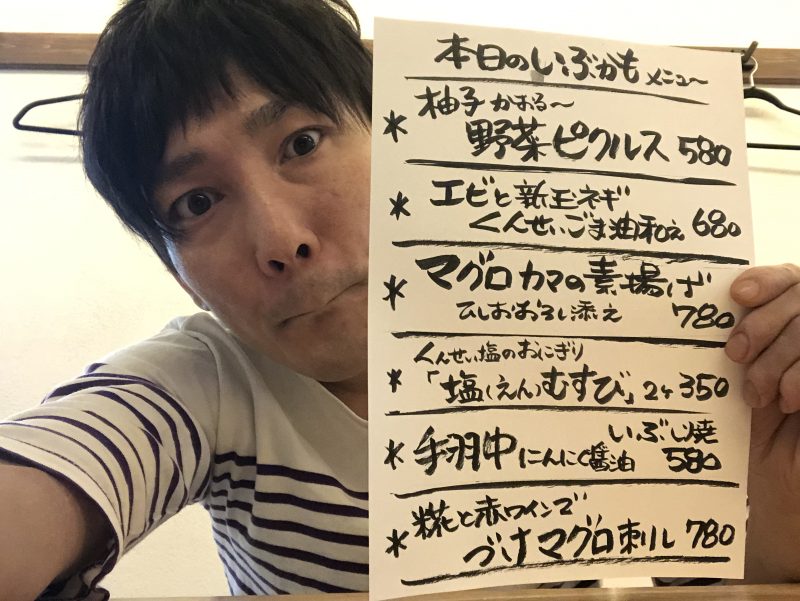 本日のいぶかも メニュ〜
＊ 柚子かおる〜
野菜ピクルス 580
＊ エビと新玉ネギ
くんせいごま油和え 680
＊ マグロカマの素揚げ
ひしおおろし添え 780
くんせい塩のおにぎり
＊ 「塩(えん)むすび」2ヶ 350
いぶし焼
＊ 手羽中 にんにく醤油 580
＊ 糀と赤ワインで
づけマグロ刺し 780